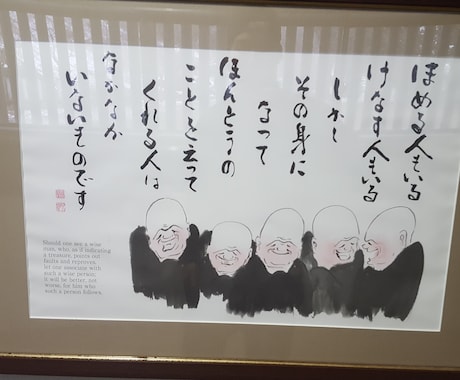 ほめる人もいる
けなす人もいる
しかし
その身に
なって
ほんとうの
ことを云って
くれる人は
なかなか
いないものです
Should one see a wise
man, who, as if indicating
a treasure, points out
faults and reproves,
let one associate with
such a wise person;
it will be better, not
worse, for him who
such a person follows.